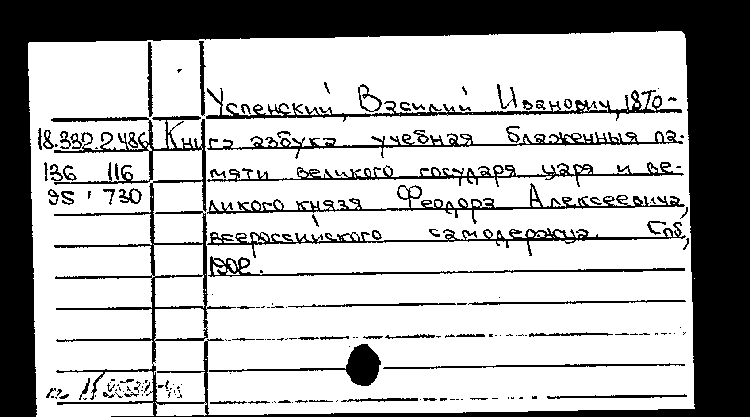 Успенский, Василий Иванович, 1870-
18.332.2.486 Книга азбука учебная блаженныя па-
136 116 мяти великого государя царя и ве-
95 730 ликого князя Феодора Алексеевича,
всероссийского самодержца. Спб,
1902.